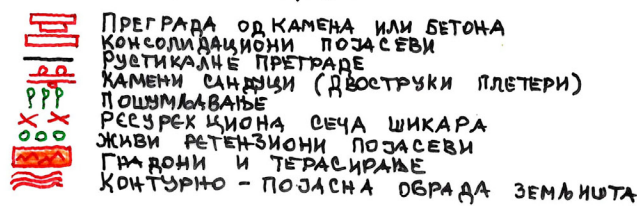 ПРЕГРАДА ОД КАМЕНА ИЛИ БЕТОНА
КОНСОЛИДАЦИОНИ ПОЈАСЕВИ
РУСТИКАЛНЕ ПРЕГРАДЕ
КАМЕНИ САНДУЦИ (ДВОСТРУКИ ПЛЕТЕРИ)
ПОШУМЉАВАЊЕ
РЕСУРЕКЦИОНА СЕЧА ШИКАРА
ЖИВИ РЕТЕНЗИОНИ ПОЈАСЕВИ
ГРАДОНИ И ТЕРАСИРАЊЕ
КОНТУРНО - ПОЈАСНА ОБРАДА ЗЕМЉИШТА